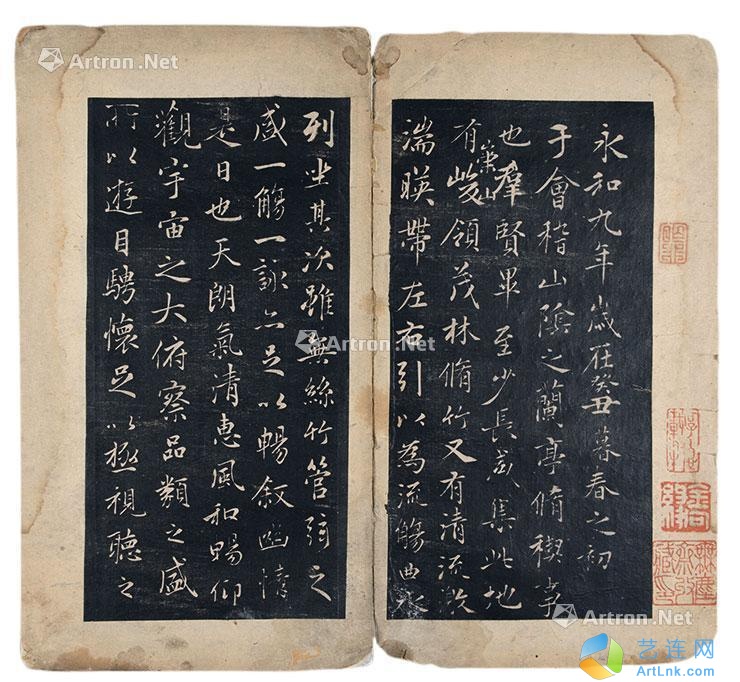 永和九年歲在癸丑暮春之初
于會稽山陰之蘭亭脩稧事
也羣賢畢至少長咸集此地
有崇山峻領茂林脩竹又有清流激
湍暎帶左右引以為流觴曲水
列坐其次雖無絲竹管弦之
盛一觴一詠亦足以暢敘幽情
是日也天朗氣清惠風和暢仰
觀宇宙之大俯察品類之盛
所以遊目騁懷足以極視聽之
Artron.Net
Artron.Net
Artron.Net
Artron.Net
艺连网
ArtLnk.com